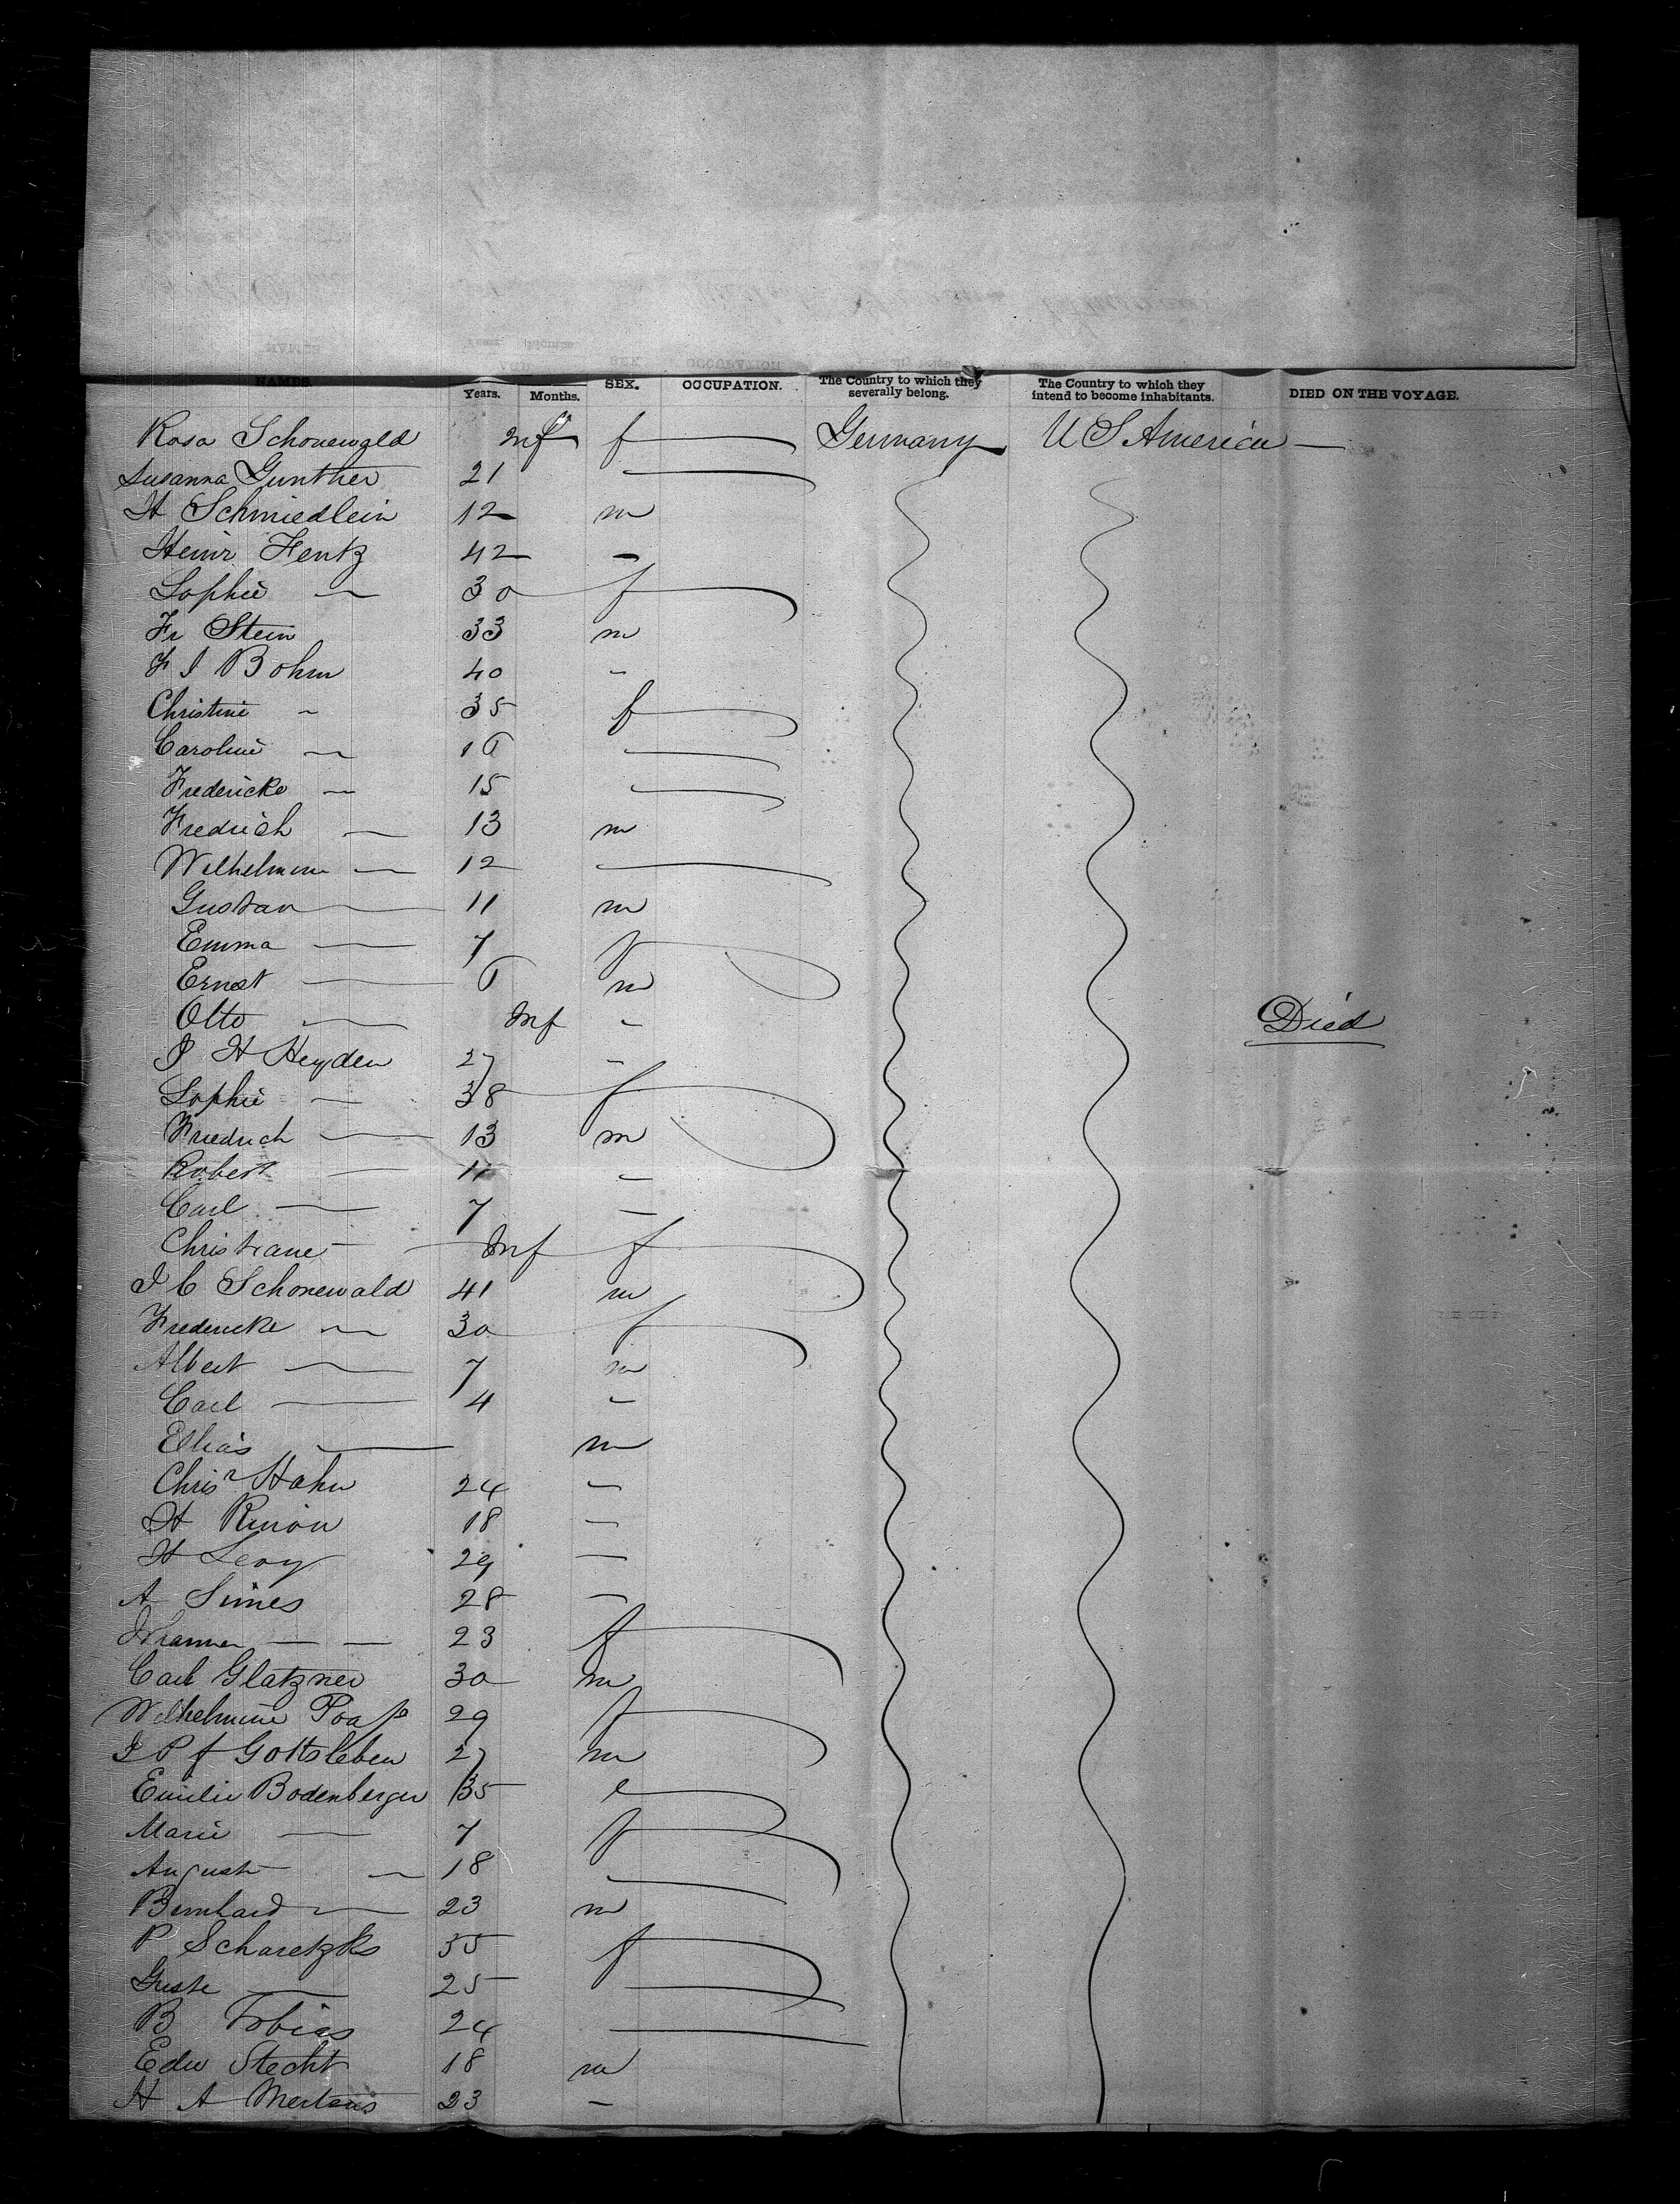 NAMES. Years. Months. SEX. OCCUPATION. The Country to which they severally belong. The Country to which they intend to become inhabitants. DIED ON THE VOYAGE.
Rosa Schonewald Inf f Germany U S America —
Susanna Gunther 21
H Schmiedlein 12 m
Heinr Fentz 42 -
Sophie — 30 f
Fr Stein 33 m
F I Bohm 40 -
Christine - 35 f
Caroline —
Fredericke — 15
Fredrich — 13 m
Wilhelmine — 12
Gustav — 11 m
Emma — 7 f
Ernst — m
Otto — Inf - Died
H Heyden 27 -
Sophie — 38 f
Friedrich — 13 m
Robert — 11 -
Carl — 7 -
Christiane — Inf f
I C Schonewald 41 m
Fredericke — 30 f
Albert — 7 m
Carl — 4 -
Elias — m
Chris Hahn 24 -
H 18 -
H Levy 29 —
A Simes 28 -
Johanna — — 23 f
Carl Glatzner 30 m
Wilhelmine 29 f
I P f Gottsleben 27 m
Emilie Bodenberger 35
Marie — 7 f
August — 18
Bernhard — 23 m
P Scharetzks 35 f
Guste — 25
B Tobias 24
Edw Stecht 18 m
H A Mertens 23 -